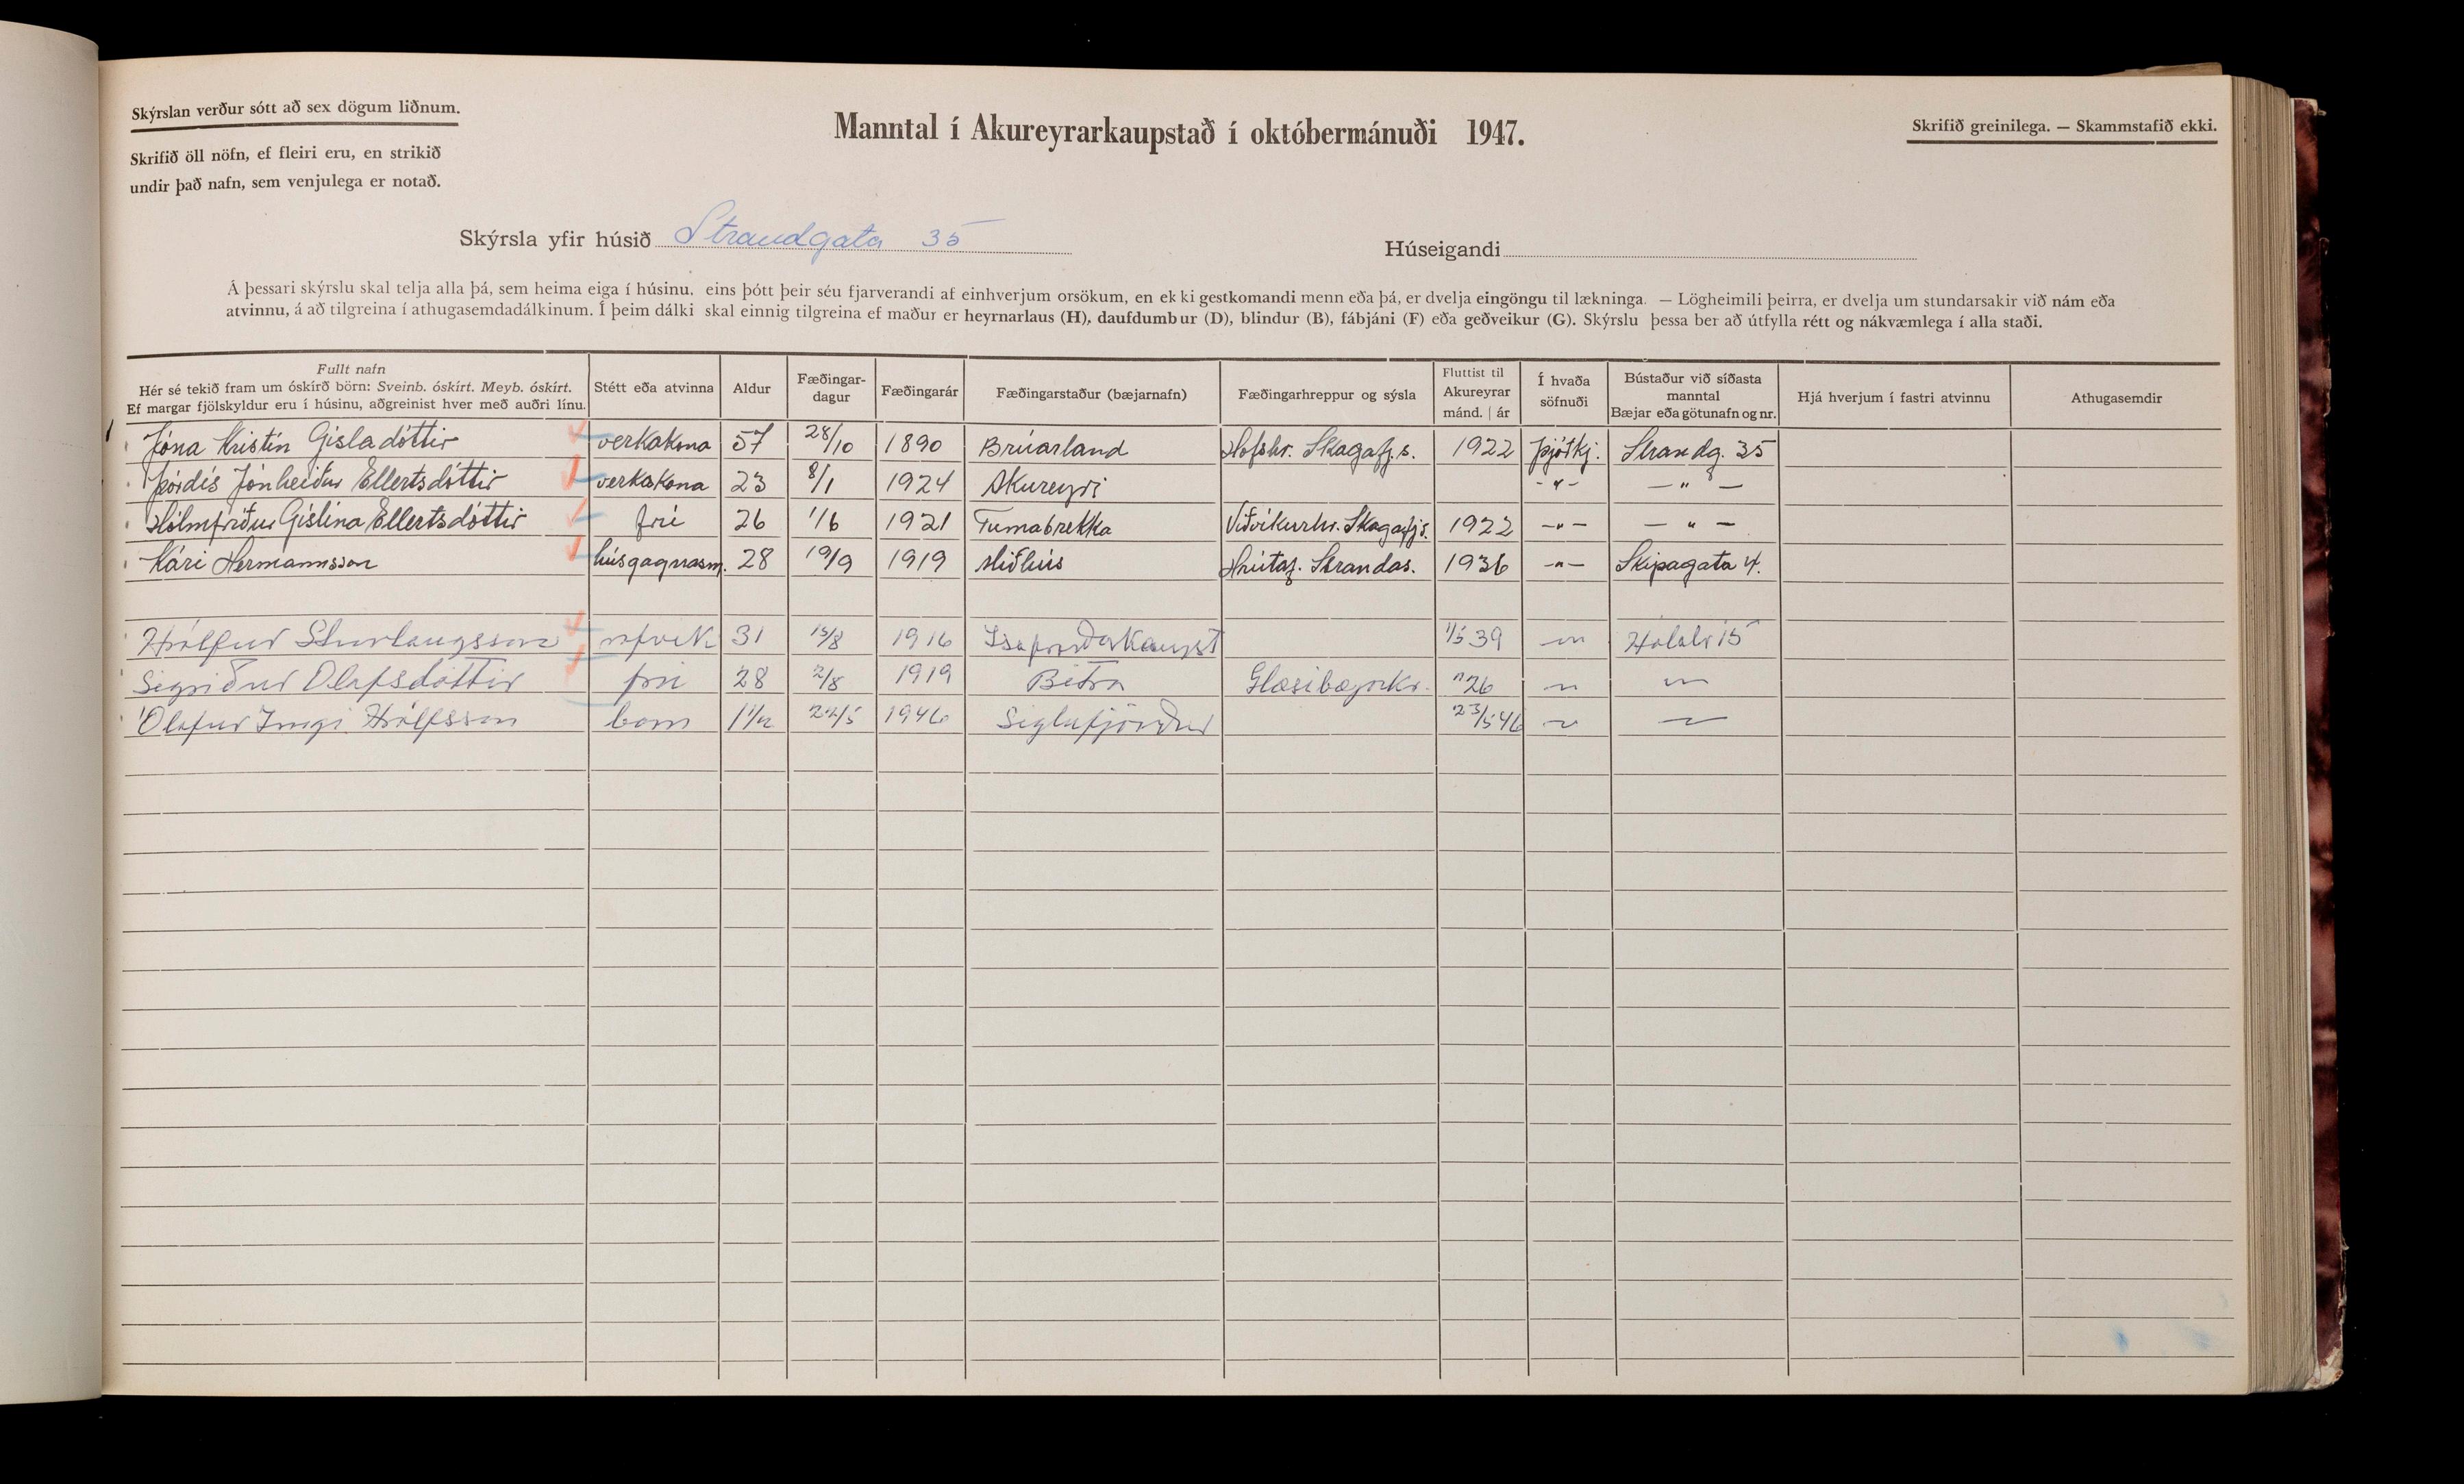 Skýrslan verður sótt að sex dögum liðnum.
Skrifið öll nöfn, ef fleiri eru, en strikið
undir það nafn, sem venjulega er notað.
Manntal í Akureyrarkaupstað í októbermánuði 1947.
Skrifið greinilega. — Skammstafið ekki.
Skýrsla yfir húsið Strandgata 35
Húseigandi
Á þessari skýrslu skal telja alla þá, sem heima eiga í húsinu, eins þótt þeir séu fjarverandi af einhverjum orsökum, en ekki gestkomandi menn eða þá, er dvelja eingöngu til lækninga. — Lögheimili þeirra, er dvelja um stundarsakir við nám eða
atvinnu, á að tilgreina í athugasemdadálkinum. Í þeim dálki skal einnig tilgreina ef maður er heyrnarlaus (H), daufdumbur (D), blindur (B), fábjáni (F) eða geðveikur (G). Skýrslu þessa ber að útfylla rétt og nákvæmlega í alla staði.
Fullt nafn
Hér sé tekið fram um óskírð börn: Sveinb. óskírt. Meyb. óskírt.
Ef margar fjölskyldur eru í húsinu, aðgreinist hver með auðri línu.
Stétt eða atvinna
Aldur
Fæðingar-
dagur
Fæðingarár
Fæðingarstaður (bæjarnafn)
Fæðingarhreppur og sýsla
Fluttist til
Akureyrar
mánd. | ár
Í hvaða
söfnuði
Bústaður við síðasta
manntal
Bæjar eða götunafn og nr.
Hjá hverjum í fastri atvinnu
Athugasemdir
Jóna Kristín Gísladóttir verkakona 57 28/10 1890 Brúarland Hofshr. Skagafj.s. 1922 Þjóðkj. Strandg. 35
Þórdís Jónheiður Ellertsdóttir verkakona 23 8/1 1924 Akureyri -"- — " —
Hólmfríður Gíslína Ellertsdóttir frú 26 1/6 1921 Tumabrekka Viðvíkurhr. Skagafj.s. 1922 -"- — " —
Kári Hermannsson húsgagnasm. 28 19/9 1919 Miðhús Hrútaf. Strandas. 1936 -"- Skipagata 4.
Hrólfur Sturlaugsson rafvk 31 15/8 1916 Ísafjarðarkaupst 1/5 39 -"- Hólabr 15
Sigríður Ólafsdóttir frú 28 2/8 1919 Bitra Glæsibæjarhr. " 26 -"- -"-
Ólafur Ingi Hrólfsson barn 1 1/2 22/5 1946 Siglufjörður 23/5 46 -"- -"-